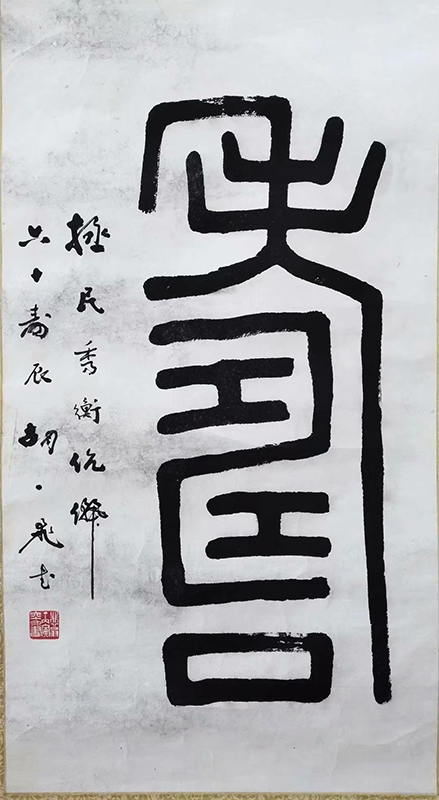 壽
拯民秀衡伉儷
六十壽辰 胡一飛書